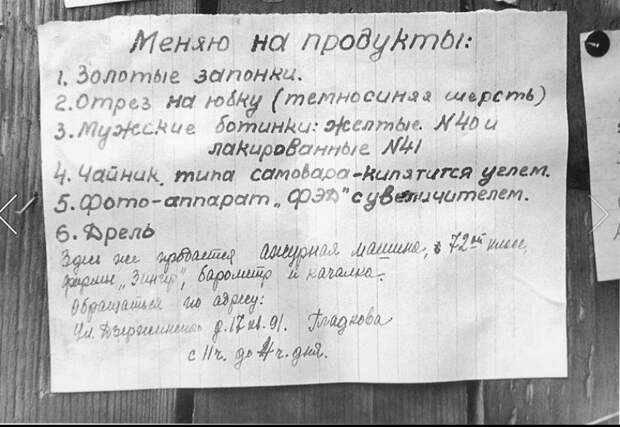 Меняю на продукты:
1. Золотые запонки.
2. Отрез на юбку (темносиняя шерсть)
3. Мужские ботинки: желтые N40 и
лакированные N41
4. Чайник, типа самовара-кипятится углем.
5. Фото-аппарат „ФЭД" с увеличителем.
6. Дрель
Здесь же продается ажурная машина, 72ой класс,
фирмы „Зингер", барометр и качалка.
Обращаться по адресу:
Ул. Дзержинского д. 17 кв. 91. Гладкова
с 11 ч. до 4 ч. дня.